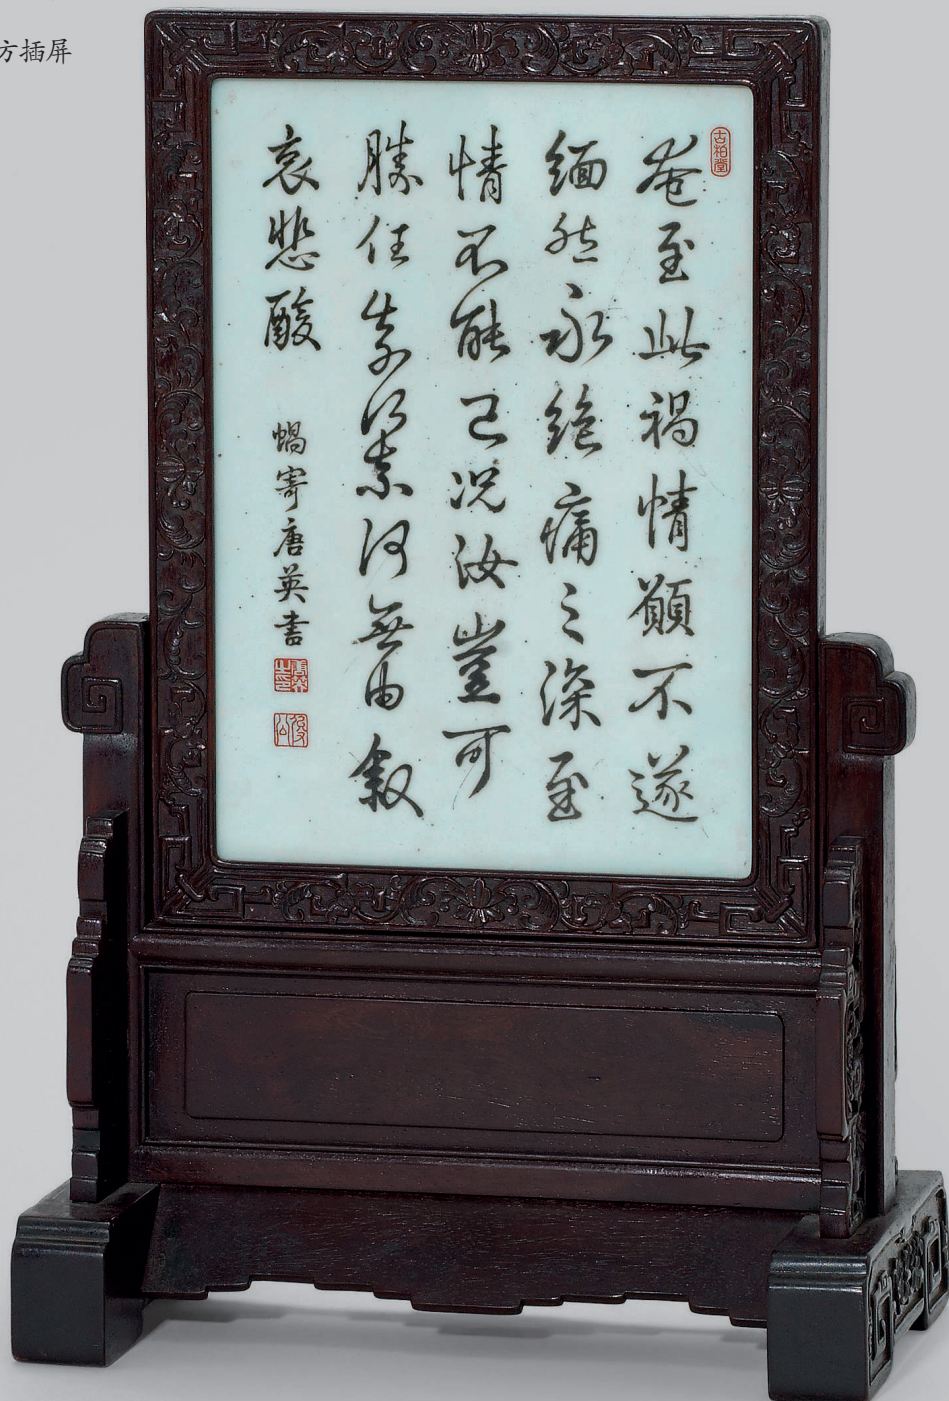 方插屏
古柏堂
奄至此禍情願不遂
緬然永絕痛之深至
情不能已況汝豈可
勝任奈何奈何無由敘
哀悲酸
蝸寄唐英書
唐英之印
俊公